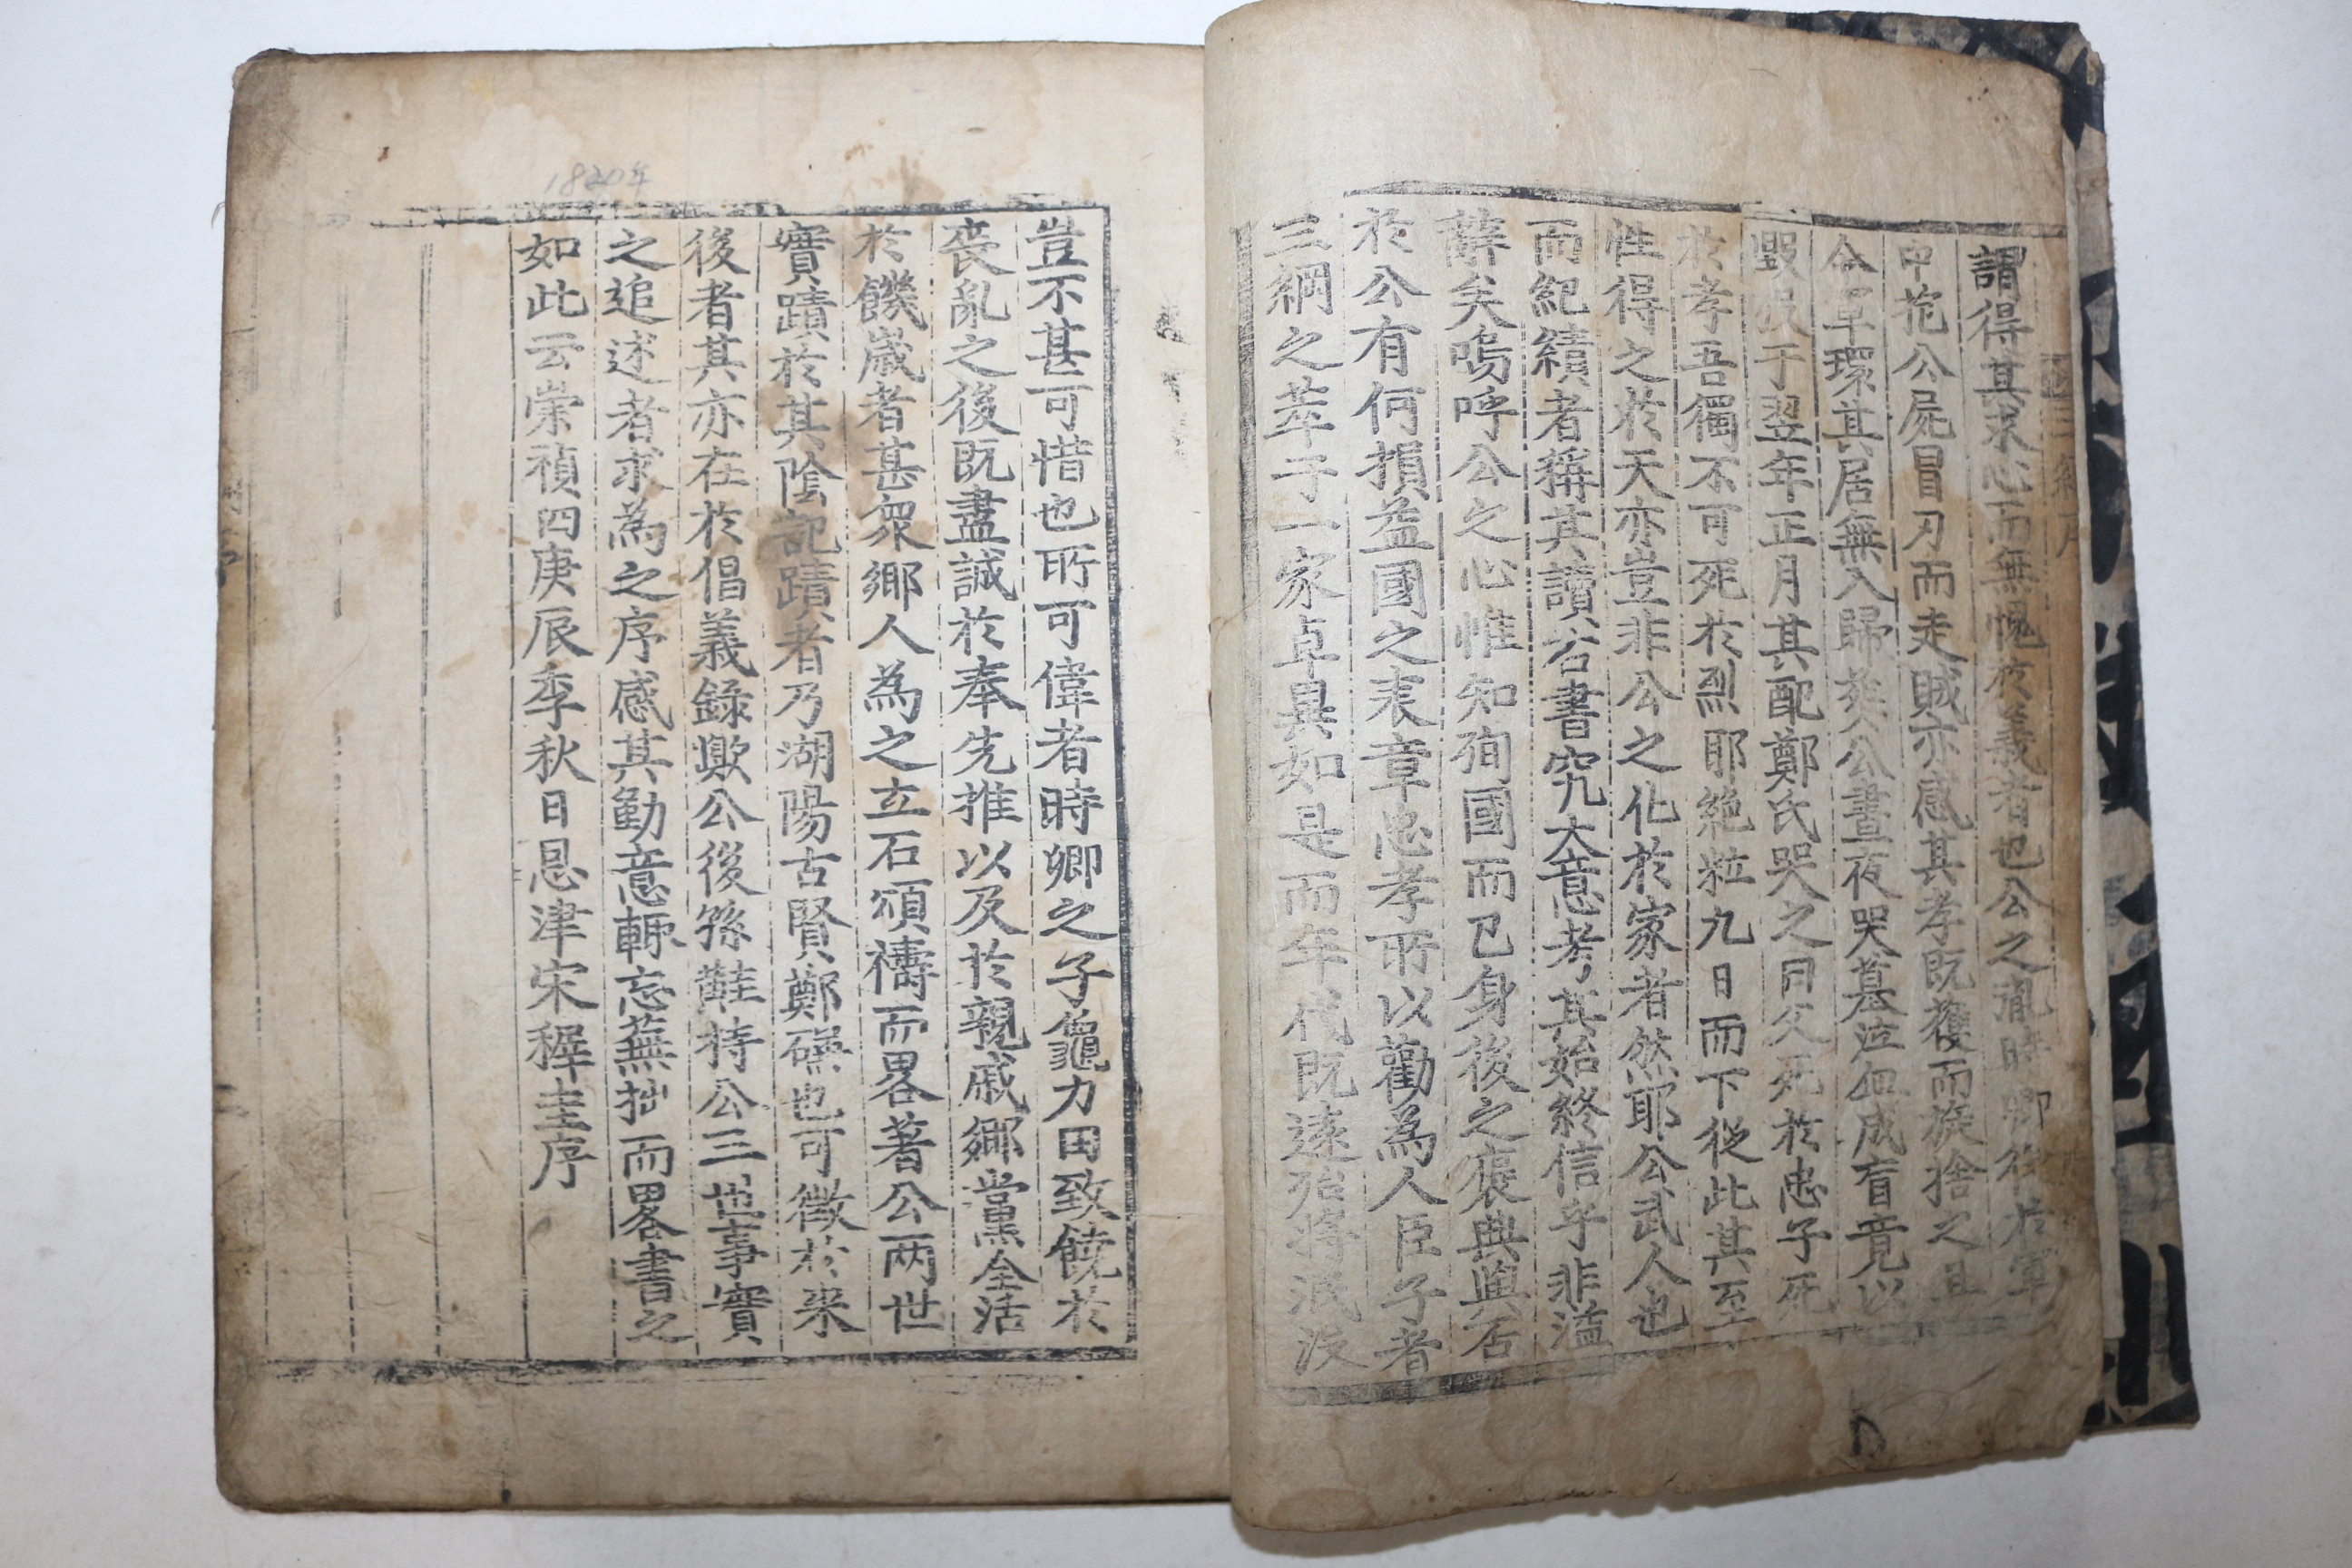 謂得其求心而無愧於義者也公之胤時卿從於軍
中抱公屍冒刃而走賊亦感其孝旣獲而旋捨之且
令草環其居無入歸葬公晝夜哭墓泣血成盲竟以
毀歿于翌年正月其配鄭氏哭之曰父死於忠子死
於孝吾獨不可死於烈耶絶粒九日而下從此其至
性得之於天亦豈非公之化於家者然耶公武人也
而紀績者稱其讀古書究大意考其始終信乎非溢
辭矣嗚呼公之心惟知殉國而已身後之褒典與否
於公有何損益國之表章忠孝所以勸爲人臣子者
三綱之萃于一家卓異如是而年代旣遠殆將泯沒
豈不甚可惜也所可偉者時卿之子龜力田致饒於
喪亂之後既盡誠於奉先推以及於親戚鄕黨全活
於饑歲者甚衆鄕人為之立石頌禱而畧著公两世
實蹟於其陰記蹟者乃湖陽古賢鄭礏也可徵於来
後者其亦在於倡義錄歟公後孫鞋持公三世事實
之追述者求為之序感其勤意輙忘蕪拙而畧書之
如此云崇禎四庚辰季秋日恩津宋穉圭序
1820年